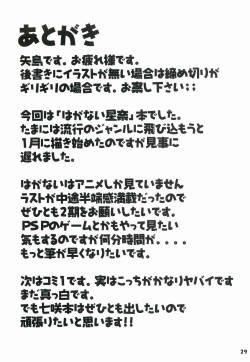 あとがき
矢島です。お疲れ様です。
後書きにイラストが無い場合は締め切りが
ギリギリの場合です。お察し下さい；；
今回は「はがない星奈」本でした。
たまには流行のジャンルに飛び込もうと
1月に描き始めたのですが見事に
遅れました。
はがないはアニメしか見ていません
ラストが中途半端感満載だったので
ぜひとも2期をお願いしたいです。
PSPのゲームとかもやって見たい
気もするのですが何分時間が．．．．
もっと筆が早くなりたいです。
次はコミ1です。実はこっちがかなりヤバイです
まだ真っ白です。
でも七咲本はぜひとも出したいので
頑張りたいと思います!!
29